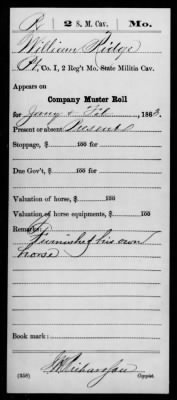 R 2 S. M. Cav. Mo.
William Ridge
Pt, Co. I, 2 Reg't Mo. State Militia Cav.
Appears on
Company Muster Roll
for Jany & Feb, 1863.
Present or absent Present
Stoppage, $ 100 for
Due Gov't, $ 100 for
Valuation of horse, $ 100
Valuation of horse equipments, $ 100
Remarks:
Furnished his own
horse
Book mark:
(358) Copyist.